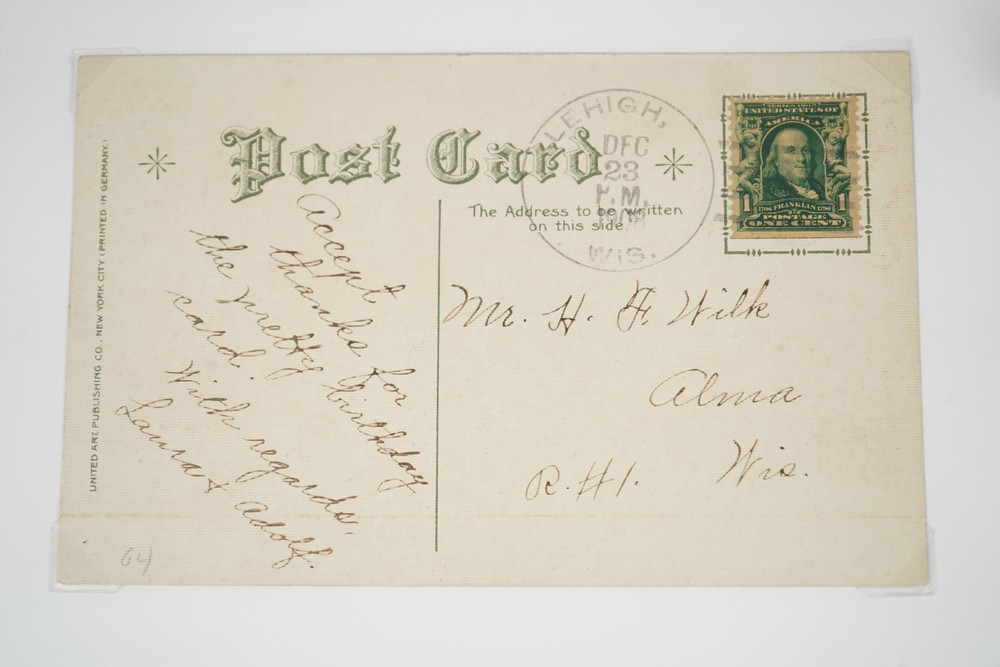 Post Card
The Address to be written
on this side.
LEHIGH,
DEC
23
P.M.
WIS.
SERIES 1902
UNITED STATES OF
AMERICA
1 1706 FRANKLIN 1790 1
POSTAGE
ONE CENT
UNITED ART PUBLISHING CO., NEW YORK CITY (PRINTED IN GERMANY.)
Accept
thanks for
the pretty birthday
card.
With regards,
Laura & Adolf.
Mr. H. F. Wilk
Alma
R.#1. Wis.
64